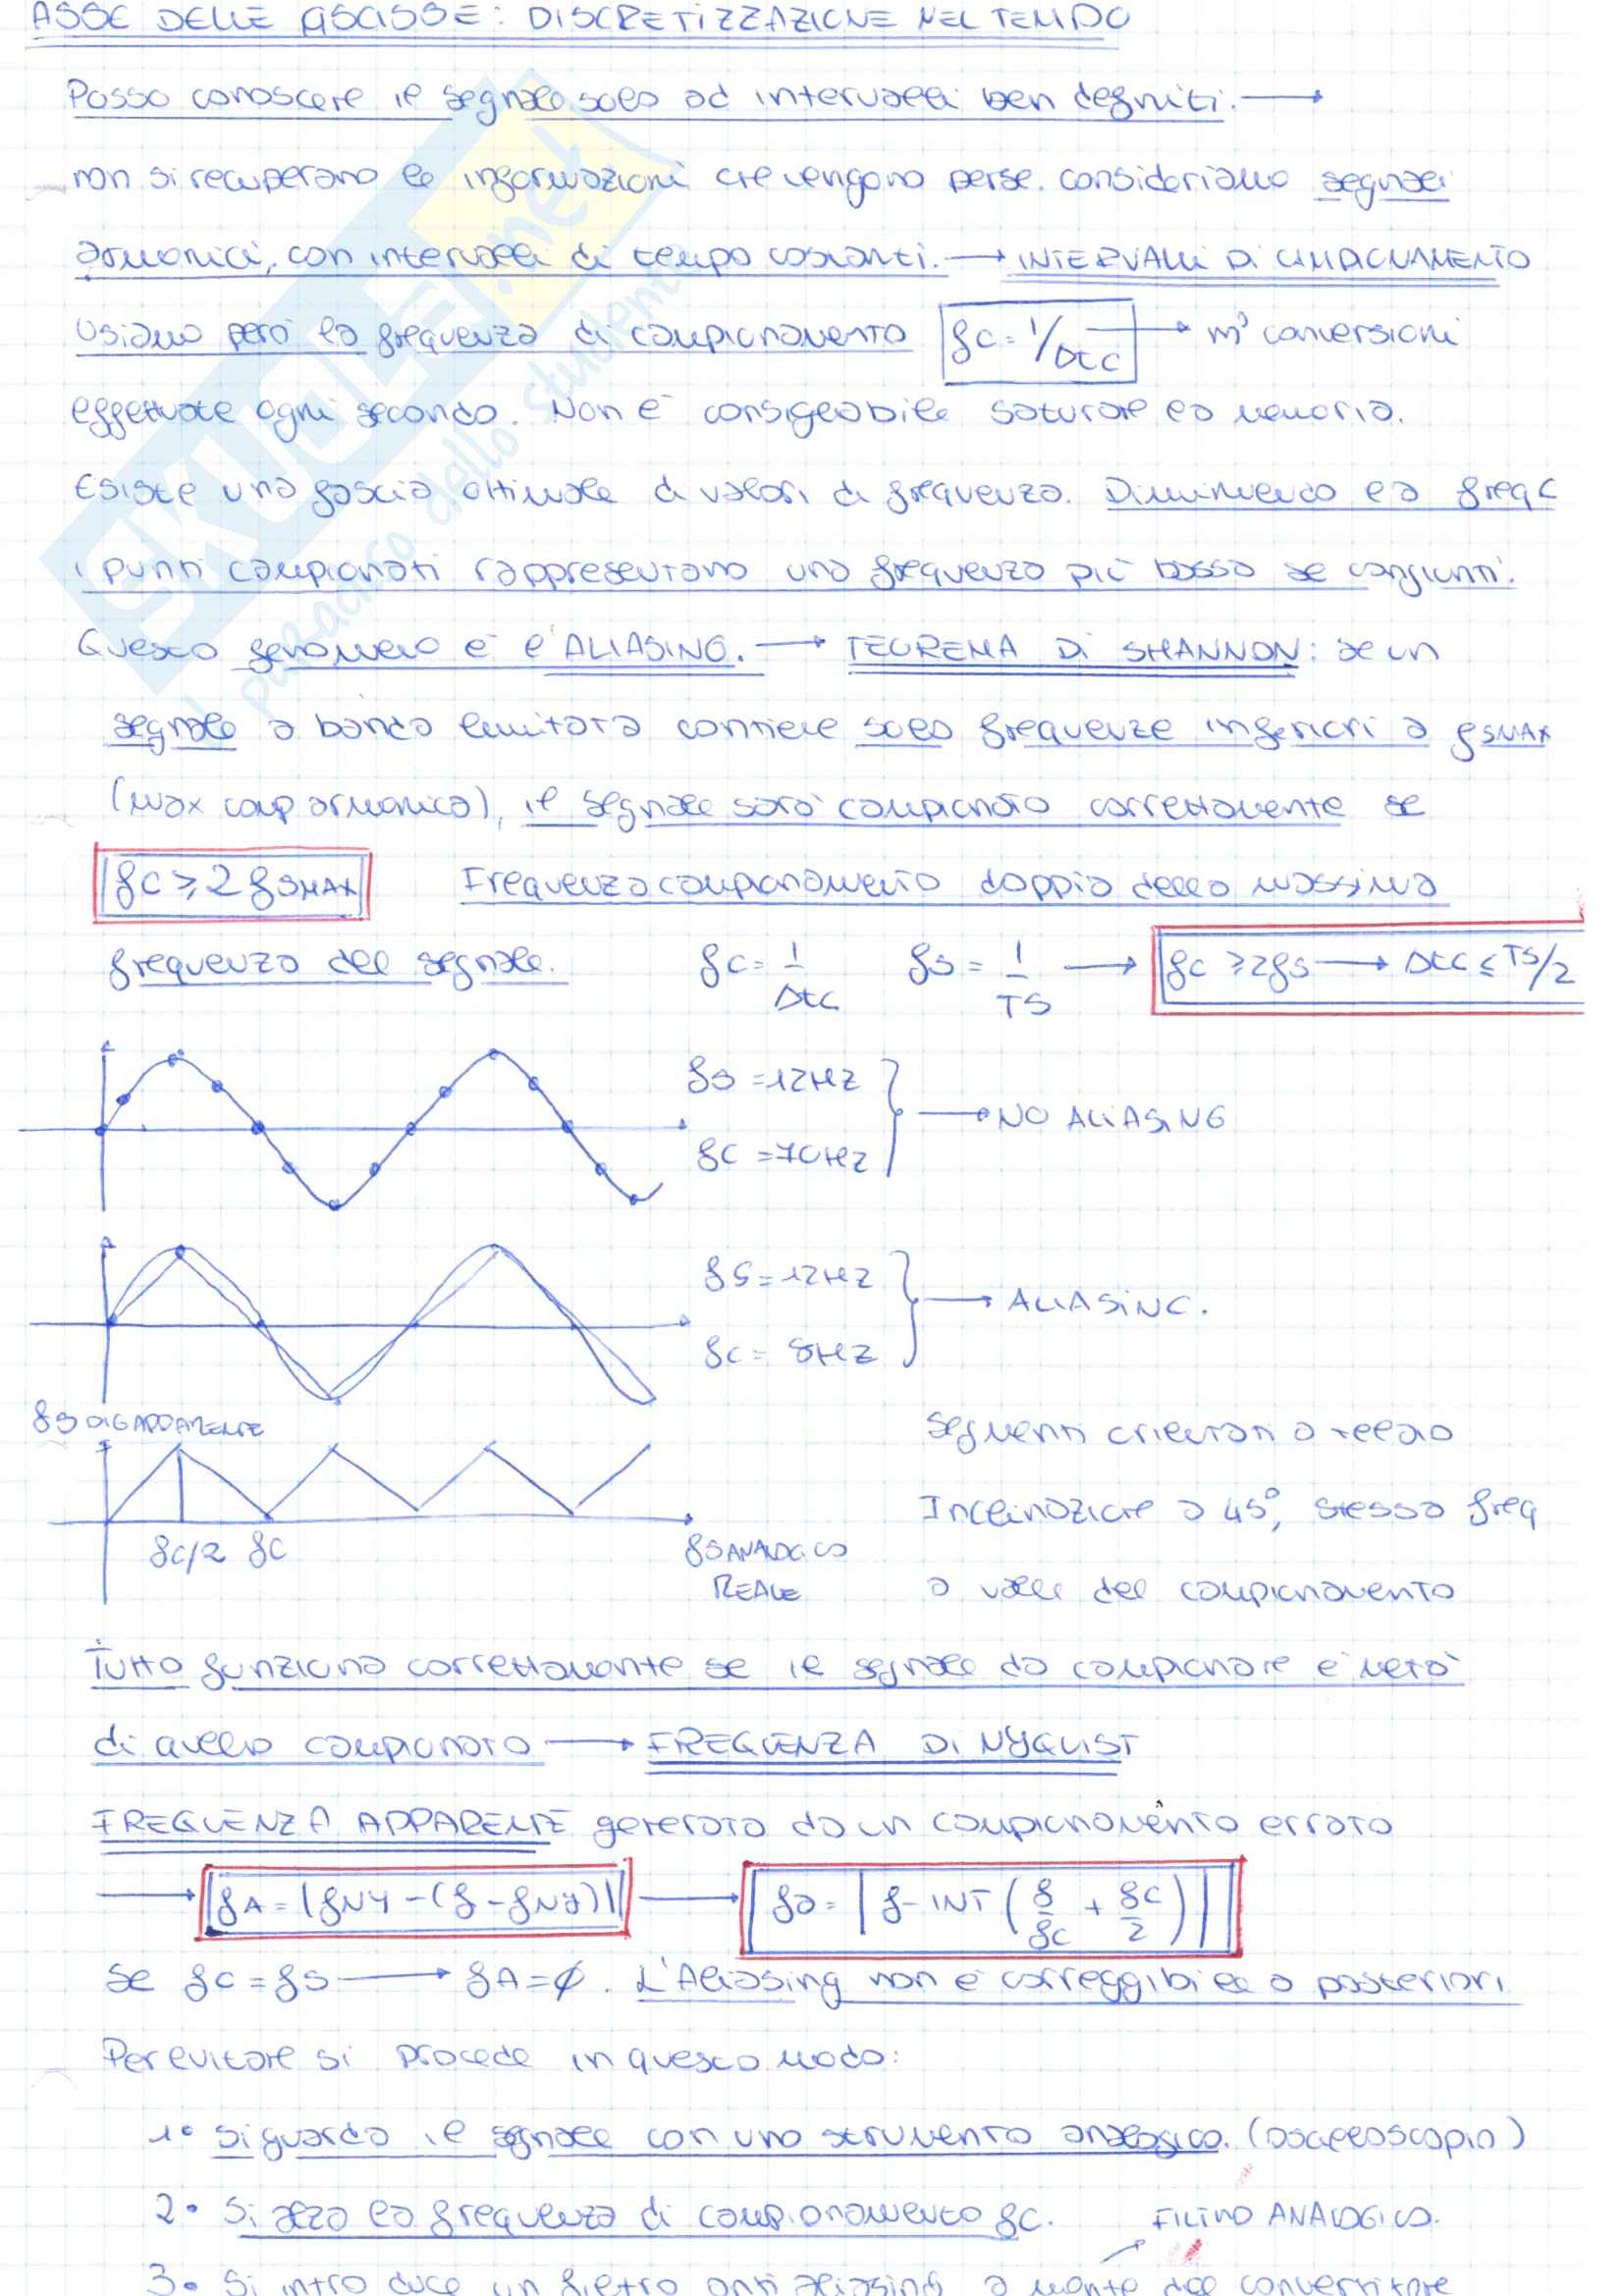 ASSE DELLE ASCISSE: DISCRETIZZAZIONE NEL TEMPO
Posso conoscere il segnale solo ad intervalli ben definiti. →
non si recuperano le informazioni che vengono perse. consideriamo segnali
armonici, con intervalli di tempo costanti. → INTERVALLI DI CAMPIONAMENTO
Usiamo però la frequenza di campionamento fc = 1/Δtc → n° conversioni
effettuate ogni secondo. Non è consigliabile saturare la memoria.
Esiste una fascia ottimale di valori di frequenza. Diminuendo la freq c
i punti campionati rappresentano una frequenza più bassa se congiunti.
Questo fenomeno è l'ALIASING. → TEOREMA DI SHANNON: se un
segnale a banda limitata contiene solo frequenze inferiori a fSMAX
(max comp armonica), il segnale sarà campionato correttamente se
fc ≥ 2 fSMAX Frequenza campionamento doppia della massima
frequenza del segnale. fc = 1/Δtc fs = 1/TS → fc ≥ 2fs → Δtc ≤ TS/2
fs = 12Hz
fc = 70Hz
→ NO ALIASING
fs = 12Hz
fc = 8Hz
→ ALIASING.
fS DIG APPARENTE
fc/2 fc
fS ANALOGICO
REALE
Segmenti orientati a
Inclinazione a 45°, stessa freq
a valle del campionamento
Tutto funziona correttamente se il segnale da campionare è metà
di quello campionato → FREQUENZA DI NYQUIST
FREQUENZA APPARENTE generata da un campionamento errato
→ fA = |fNY - (f - fNy)| → fa = |f - INT (f/fc + fc/2)|
Se fc = fs → fA = ∅. L'Aliasing non è correggibile a posteriori
Per evitare si procede in questo modo:
1• Si guarda il segnale con uno strumento analogico. (oscilloscopio)
2• Si alza la frequenza di campionamento fc. FILTRO ANALOGICO.
3• Si introduce un filtro anti aliasing a monte del convertitore
SKUOLA.net
il paradiso dello studente